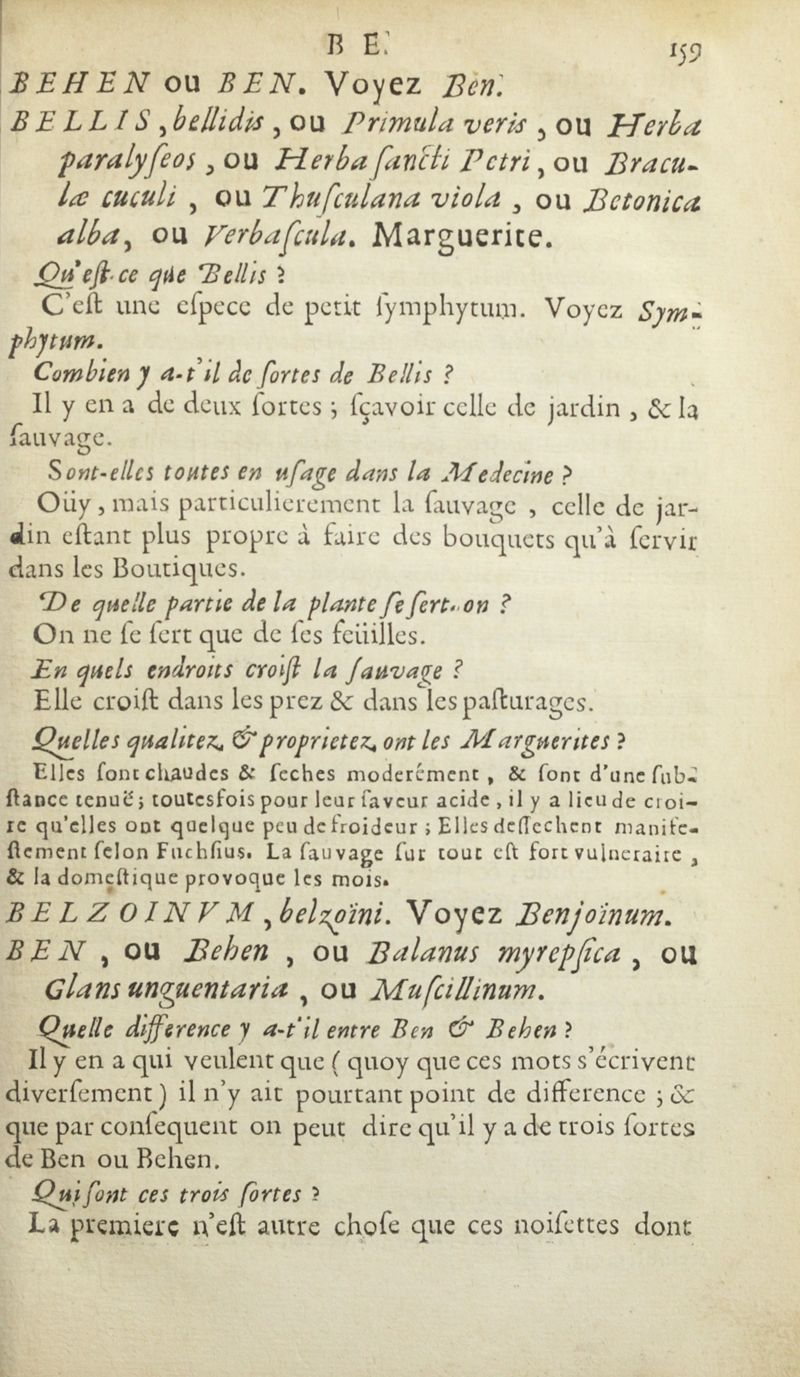 B E.
159
BEHEN ou BEN. Voyez Ben.
BELLIS, bellidis, ou Primula veris, ou Herba
paralyſeos, ou Herba ſancti Petri, ou Bracu-
læ cuculi, ou Thuſculana viola, ou Betonica
alba, ou Verbaſcula. Marguerite.
Qu'eſt-ce que Bellis ?
C'eſt une eſpece de petit ſymphytum. Voyez Sym-
phytum.
Combien y a-t'il de ſortes de Bellis ?
Il y en a de deux ſortes ; ſçavoir celle de jardin , & la
ſauvage.
Sont-elles toutes en uſage dans la Medecine ?
Oüy, mais particulierement la ſauvage , celle de jar-
din eſtant plus propre à faire des bouquets qu'à ſervir
dans les Boutiques.
De quelle partie de la plante ſe ſert-on ?
On ne ſe ſert que de ſes feüilles.
En quels endroits croiſt la ſauvage ?
Elle croiſt dans les prez & dans les paſturages.
Quelles qualitez & proprietez ont les Marguerites ?
Elles ſont chaudes & ſeches moderément , & ſont d'une ſub-
ſtance tenuë; toutesfois pour leur ſaveur acide , il y a lieu de croi-
re qu'elles ont quelque peu de froideur ; Elles deſſechent manife-
ſtement ſelon Fuchſius. La ſauvage ſur tout eſt fort vulneraire ,
& la domeſtique provoque les mois.
BELZOINVM, belzoini. Voyez Benjoinum.
BEN , ou Behen , ou Balanus myrepſica , ou
Glans unguentaria , ou Muſcillinum.
Quelle difference y a-t'il entre Ben & Behen ?
Il y en a qui veulent que ( quoy que ces mots s'écrivent
diverſement ) il n'y ait pourtant point de difference ; &
que par conſequent on peut dire qu'il y a de trois ſortes
de Ben ou Behen.
Qui ſont ces trois ſortes ?
La premiere n'eſt autre choſe que ces noiſettes dont